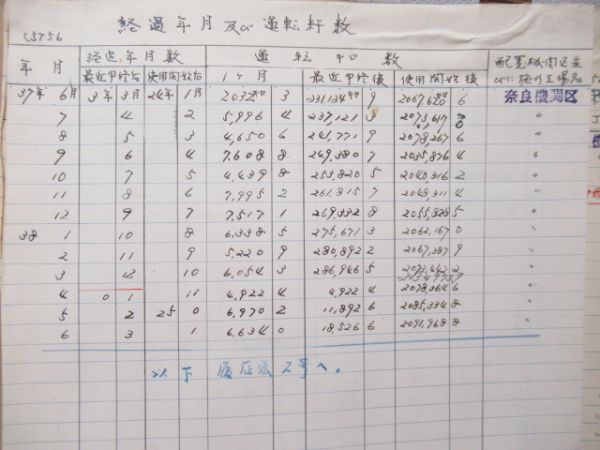 C5756
経過年月及び運転粁数
年 月 経過年月数 運転キロ数 配置機関区並
最近甲修后 使用開始后 1ケ月 最近甲修後 使用開始後 びに施行工場名
37年 6月 3年 3月 24年 1月 2032 3 231124 9 2067620 6 奈良機関区
7 4 2 5,996 4 237,121 3 2073,617 0 〃
8 5 3 4,650 6 241,771 9 2078,267 6 〃
9 6 4 7,608 8 249,380 7 2035,876 4 〃
10 7 5 4,439 8 253,820 5 2040,316 2 〃
11 8 6 7,995 2 261,815 7 2048,311 4 〃
12 9 7 7,517 1 269,332 8 2055,828 5 〃
38 1 10 8 6,338 5 275,671 3 2062,167 0 〃
2 11 9 5,220 9 280,892 2 2067,387 9 〃
3 12 10 6,054 3 286,946 5 2073,442 2 〃
4 0 1 11 4,922 4 4,922 4 2078,364 6 〃
5 2 25 0 6,970 2 11,892 6 2085,334 8 〃
6 3 1 6,634 0 18,526 6 2091,968 8 〃
以下 履歴簿 2号へ。